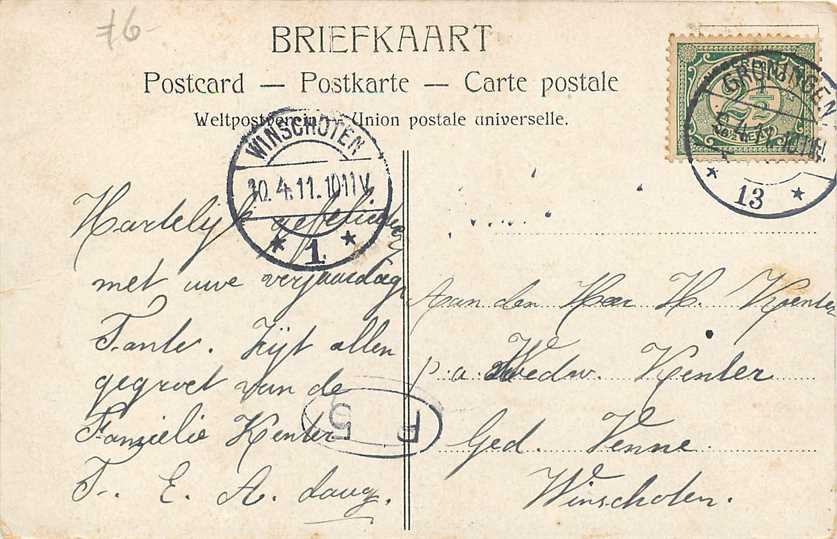 76-
BRIEFKAART
Postcard — Postkarte — Carte postale
Weltpostverein — Union postale universelle.
WINSCHOTEN
10.4.11.1011V
1
GRONINGEN
13
2½
Hartelijk gefeliciteer
met uwe verjaardag
Tante. Zijt allen
gegroet van de
Familie Kenter
T. E. A. laug.
P 5
Aan den Heer H. Koenter
p.a Wedw. Kenter
Ged. Venne
Winschoten.